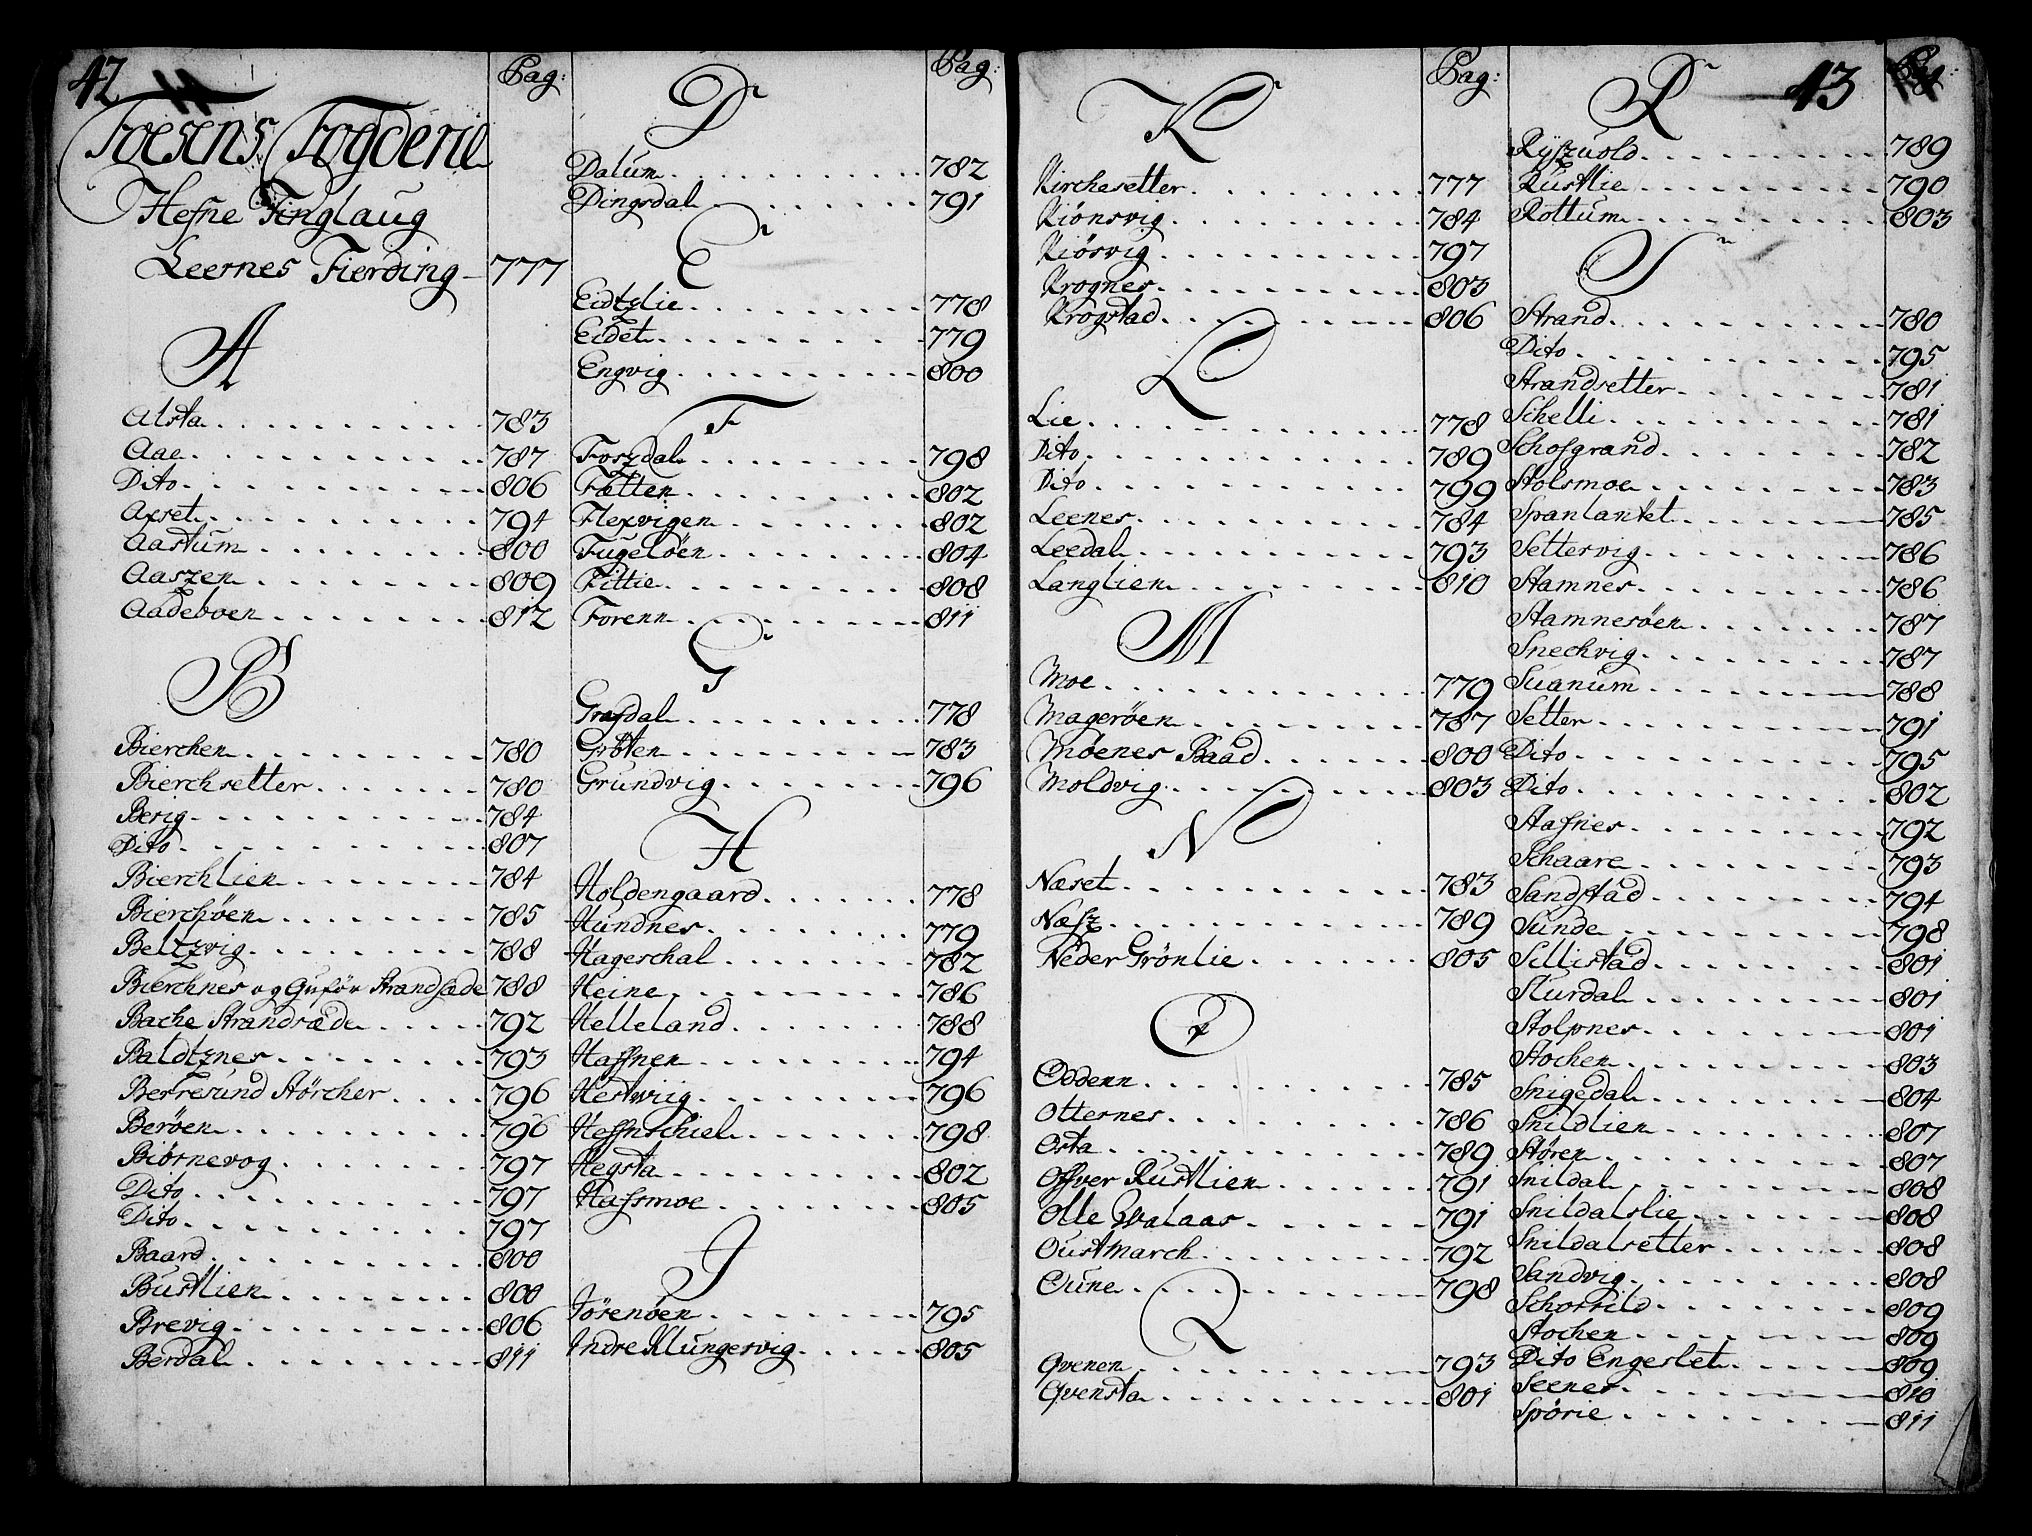 42
Pag:
Foesens Fogderie
Hefne Tinglaug
Leernes Fierding 777
A
Alsta 783
Aae 787
Dito 806
Axset 794
Aastum 800
Aaszen 809
Aadeboen 812
B
Bierchen 780
Bierchsetter 780
Berig 784
Dito 807
Bierchlien 784
Bierchöen 785
Beltzvig 788
Bierchnes og Gusför Strandsæde 788
Bache Strandsæde 792
Baldtznes 793
Berresund Störcher 796
Beröen 796
Biörnevog 797
Dito 797
Dito 797
Baard 800
Bustlien 800
Brevig 806
Berdal 811
Pag:
D
Dalum 782
Dingsdal 791
E
Eidtzlie 778
Eidet 779
Engvig 800
F
Foszdal 798
Fætten 802
Flexvigen 802
Fugelöen 804
Fittie 808
Forenn 811
G
Grafdal 778
Gröten 783
Grundvig 796
H
Holdengaard 778
Hundnes 779
Hageschal 782
Heine 786
Helleland 788
Haffnen 794
Hestwiig 796
Heffnschiel 798
Hegsta 802
Hafsmoe 805
J
Jörenöen 795
Indre Klungervig 805
Pag:
K
Kirchesetter 777
Kiönsvig 784
Kiörvig 797
Krognes 803
Krogstad 806
L
Lie 778
Dito 789
Dito 799
Leenes 784
Leedal 793
Langlien 810
M
Moe 779
Mageröen 787
Möenes Baad 800
Moldvig 803
N
Næset 783
Næsz 789
Neder Grönlie 805
O
Oddenn 785
Otternes 786
Osta 789
Offver Rustlien 791
Olle Walaas 791
Oustmarch 792
Oune 798
Q
Qvenen 793
Qvensta 801
43
Pag:
R
Ryszvold 789
Rustlie 790
Rottum 803
S
Strand 780
Dito 795
Strandsetter 781
Schelli 781
Schofgrand 782
Stolsmoe 783
Spanlantet 785
Settervig 786
Stamnes 786
Stamnesöen 787
Snechvig 787
Suanum 788
Setter 791
Dito 795
Dito 802
Stafnes 792
Schaare 793
Sandstad 794
Sunde 798
Sillistad 801
Slurdal 801
Stolpnes 801
Stochen 803
Snigedal 804
Snildlien 807
Stören 807
Snildal 808
Snildalslie 808
Snildalsetter 808
Sandvig 808
Schorrild 809
Stochen 809
Dito Engeslet 809
Seenes 810
Spörie 811